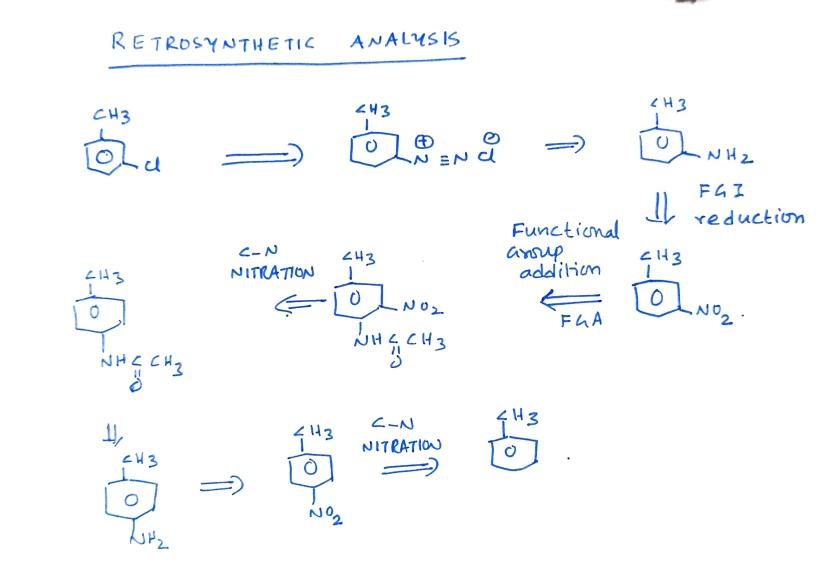 RETROSYNTHETIC ANALYSIS
CH3
Cl
CH3
⊕
N ≡N Cl
⊖
CH3
NH2
FGI
reduction
CH3
NO2.
Functional
Group
addition
FGA
CH3
NO2
NHCCH3
O
C-N
NITRATION
CH3
NHCCH3
O
CH3
NH2
CH3
NO2
C-N
NITRATION
CH3